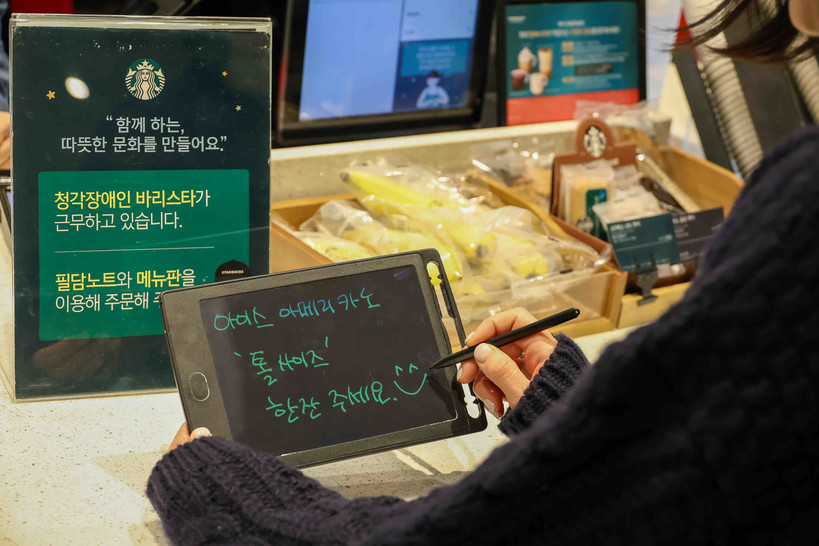 “함께 하는,
따뜻한 문화를 만들어요.”
청각장애인 바리스타가
근무하고 있습니다.
필담노트와 메뉴판을
이용해 주문해
아이스 아메리카노
'톨 사이즈'
한잔 주세요.^^